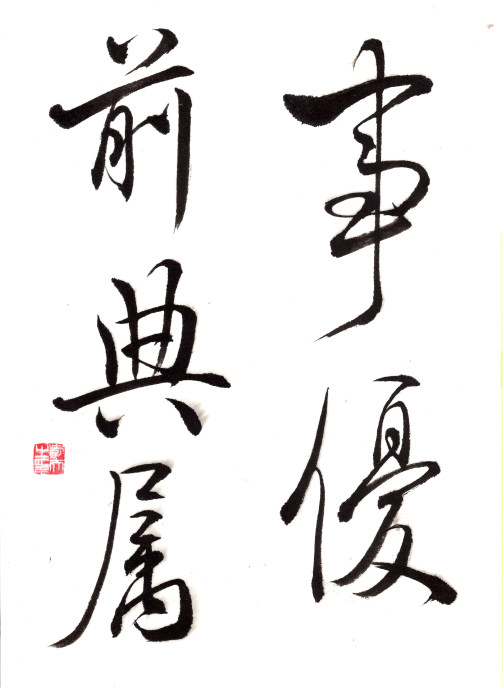 事優
前典属